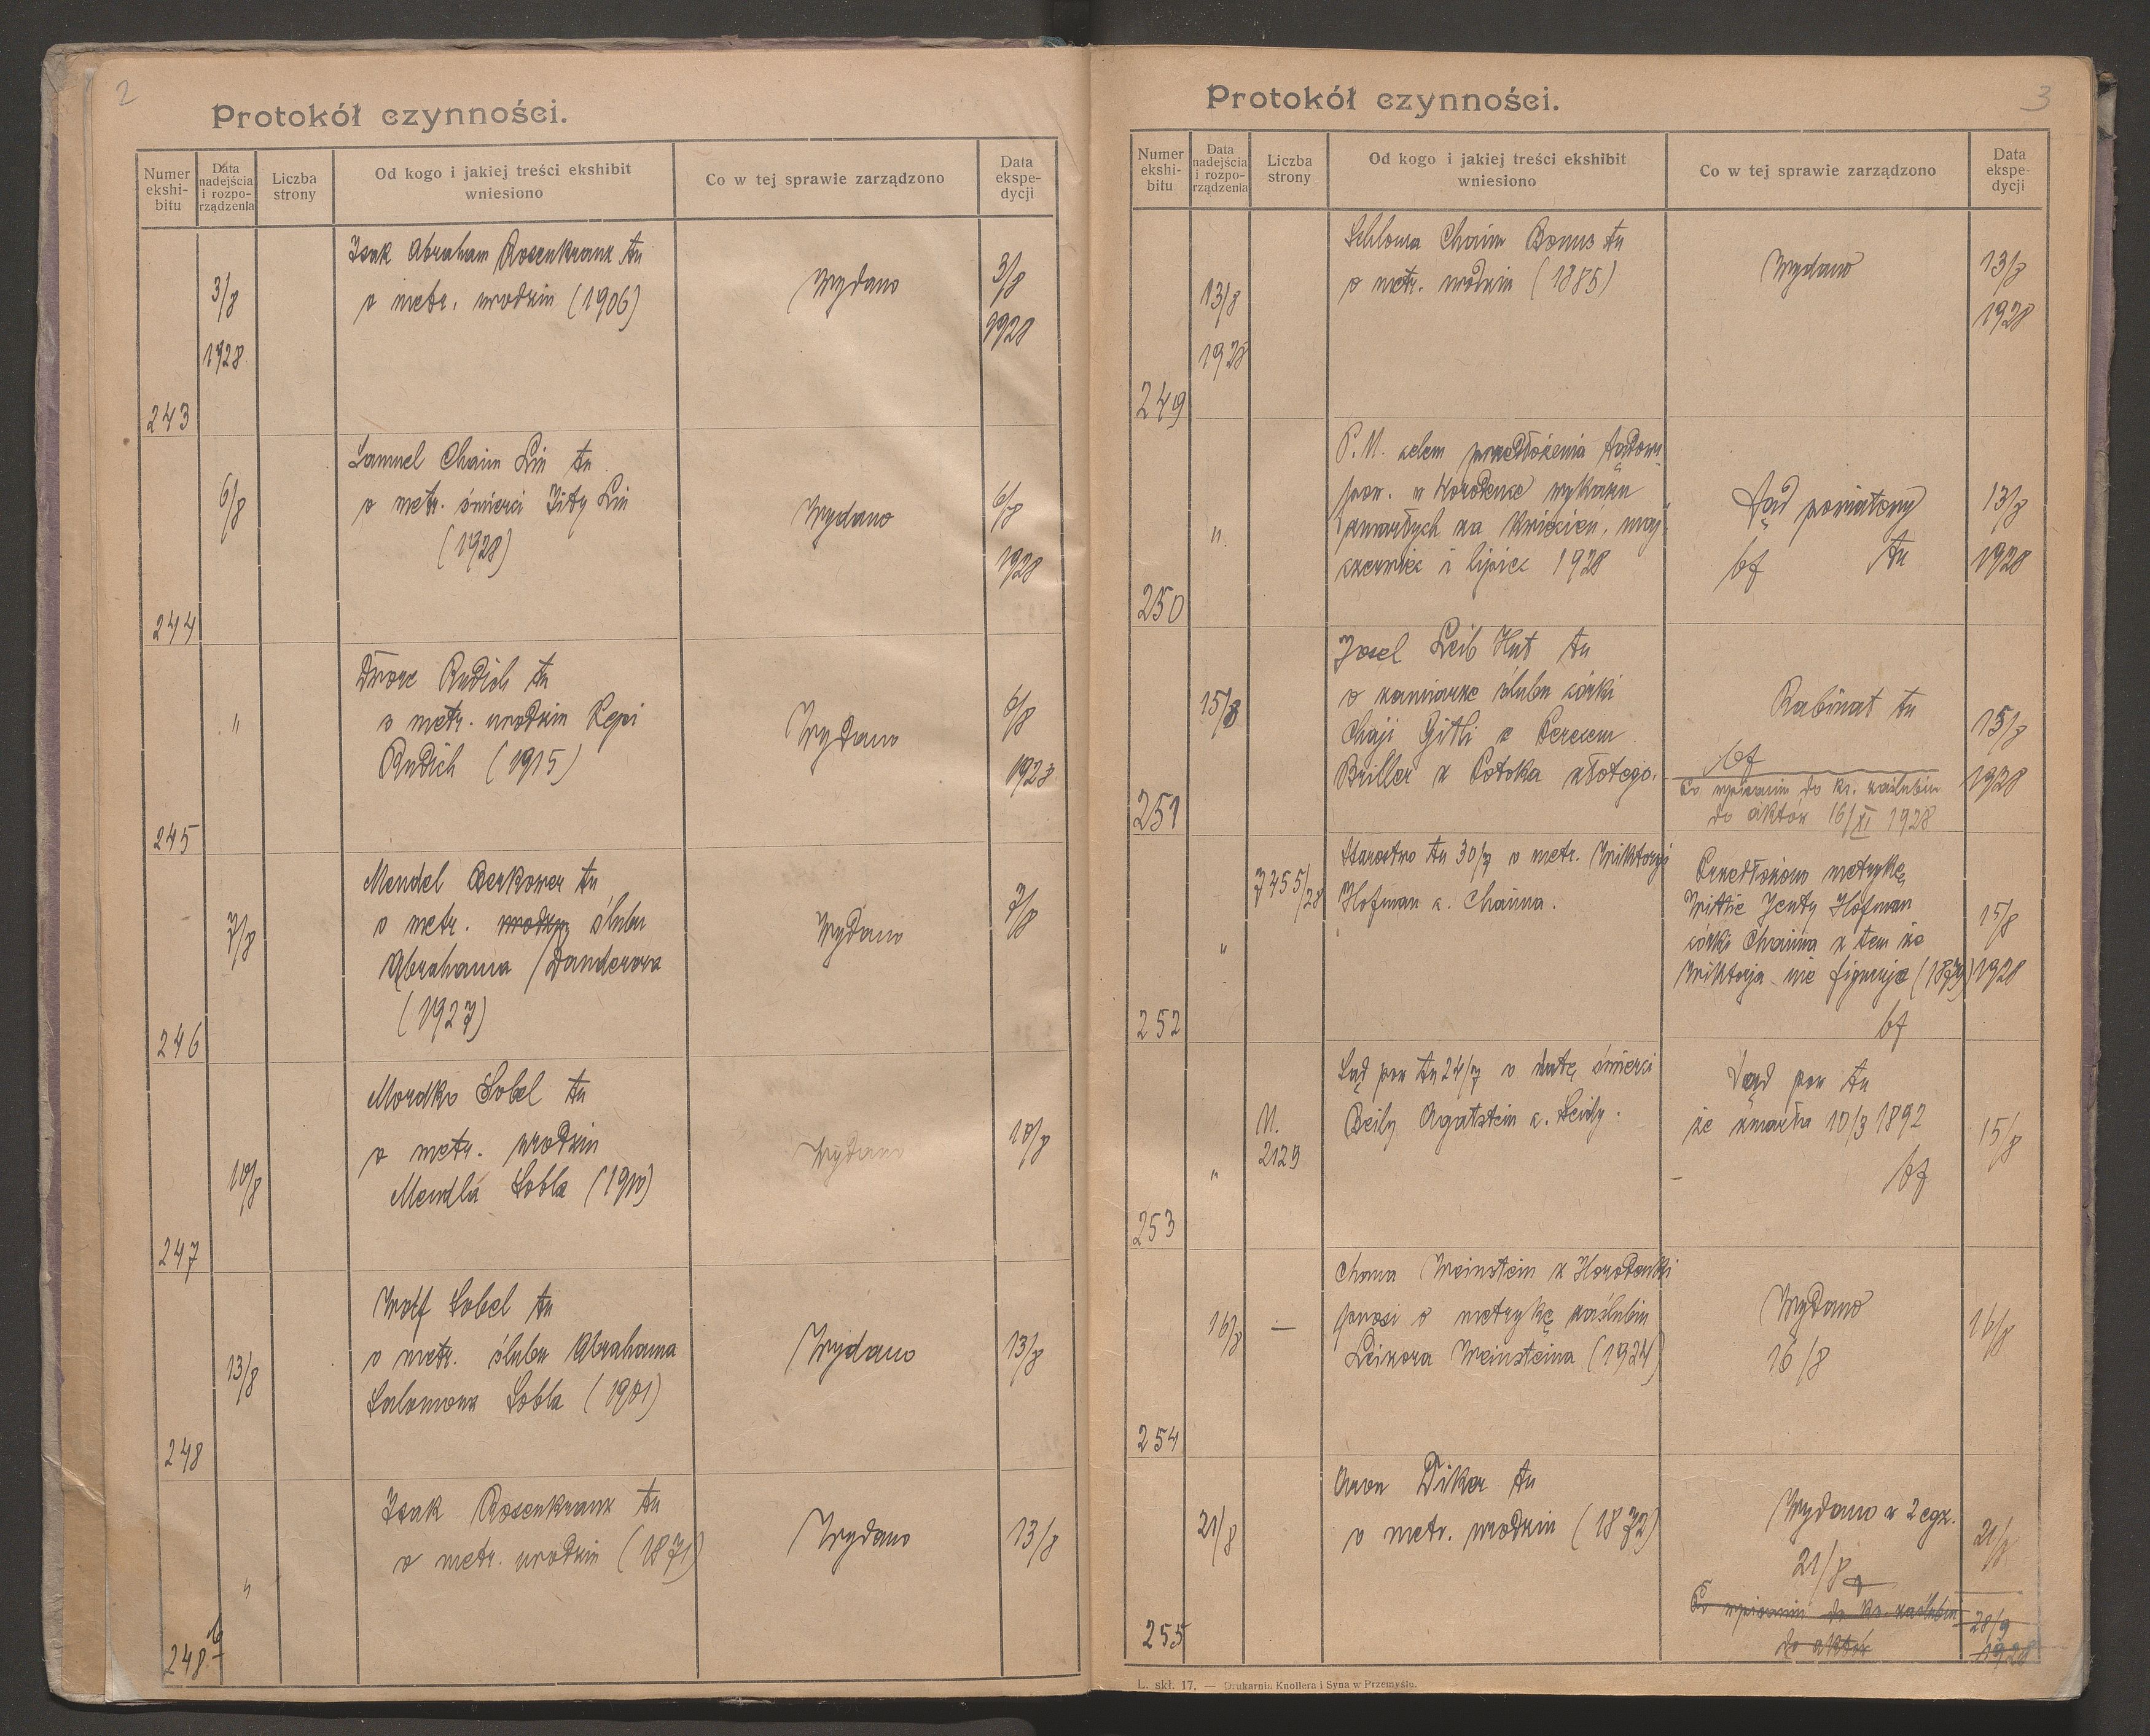 2
Protokół czynności.
Numer ekshi-bitu | Data nadejścia i rozpo-rządzenia | Liczba strony | Od kogo i jakiej treści ekshibit wniesiono | Co w tej sprawie zarządzono | Data ekspe-dycji
243
3/8
1928
Izak Abraham Rosenkranz tu
o metr. urodzin (1906)
Wydano
3/8
1928
244
6/8
Samuel Chaim Lin tu
o metr. śmierci Lin
(1928)
Wydano
6/8
1928
245
"
Rudich tu
o metr. urodzin Pepi
Rudich (1915)
Wydano
6/8
1928
246
7/8
Mendel Berkower tu
o metr. urodzin ślubu
Abrahama
(1927)
Wydano
7/8
247
10/8
Mordko Sobel tu
o metr. urodzin
Mendla Sobla (1910)
Wydano
10/8
248
13/8
Wolf Sobel tu
o metr. ślubu Abrahama
Salomona Sobla (1901)
Wydano
13/8
248b
"
Izak Rosenkranz tu
o metr. urodzin (1871)
Wydano
13/8
3
Protokół czynności.
Numer ekshi-bitu | Data nadejścia i rozpo-rządzenia | Liczba strony | Od kogo i jakiej treści ekshibit wniesiono | Co w tej sprawie zarządzono | Data ekspe-dycji
249
13/8
1928
Schloma Chaim Bonus tu
o metr. urodzin (1885)
Wydano
13/8
1928
250
"
P. U. celem przedłożenia Sądowi
pow. w Horodence wykazu
zmarłych za kwiecień, maj
czerwiec i lipiec 1928
Sąd powiatowy
tu
13/8
1928
251
15/8
Josel Leib Hut tu
o zamiarze ślubu córki
Chaji Gitli z Perecem
Briller z Potoka złotego.
Rabinat tu
Po wpisaniu do ks. zaślubin
do aktów 16/XI 1928
15/8
1928
252
"
7455/28
Starostwo tu 30/7 o metr. Wiktorji
Hofman c. Chaima.
Przedłożono metrykę
Jenty Hofman
córki Chaima z tem że
Wiktorja nie figuruje (1879)
15/8
1928
253
"
U.
2129
Sąd pow tu 24/7 o datę śmierci
Beily Agatstein c.
Sąd pow tu
że zmarła 10/3 1892
15/8
254
16/8
—
Chana Weinstein z Horodenki
prosi o metrykę zaślubin
Leizora Weinsteina (1924)
Wydano
16/8
16/8
255
21/8
Aron Diker tu
o metr. urodzin (1872)
Wydano w 2 egz.
21/8
Po wpisaniu do ks. zaślubin
do aktów
21/8
28/9
1928
L. skł. 17. — Drukarnia Knollera i Syna w Przemyślu.